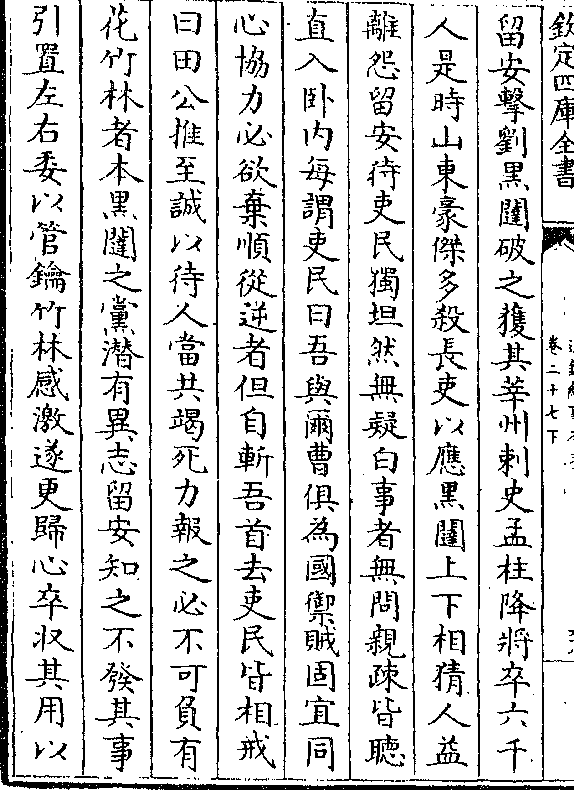 欽定四庫全書
卷二十七下
留安擊劉黑闥破之獲其莘州刺史孟柱降將卒六千
人是時山東豪傑多殺長吏以應黑闥上下相猜人益
離怨留安待吏民獨坦然無疑白事者無問親疎皆聽
直入卧内每謂吏民曰吾與爾曹俱為國禦賊固宜同
心協力必欲棄順從逆者但自斬吾首去吏民皆相戒
曰田公推至誠以待人當共竭死力報之必不可負有
花竹林者本黑闥之黨潜有異志留安知之不發其事
引置左右委以管鑰竹林感激遂更歸心卒收其用以